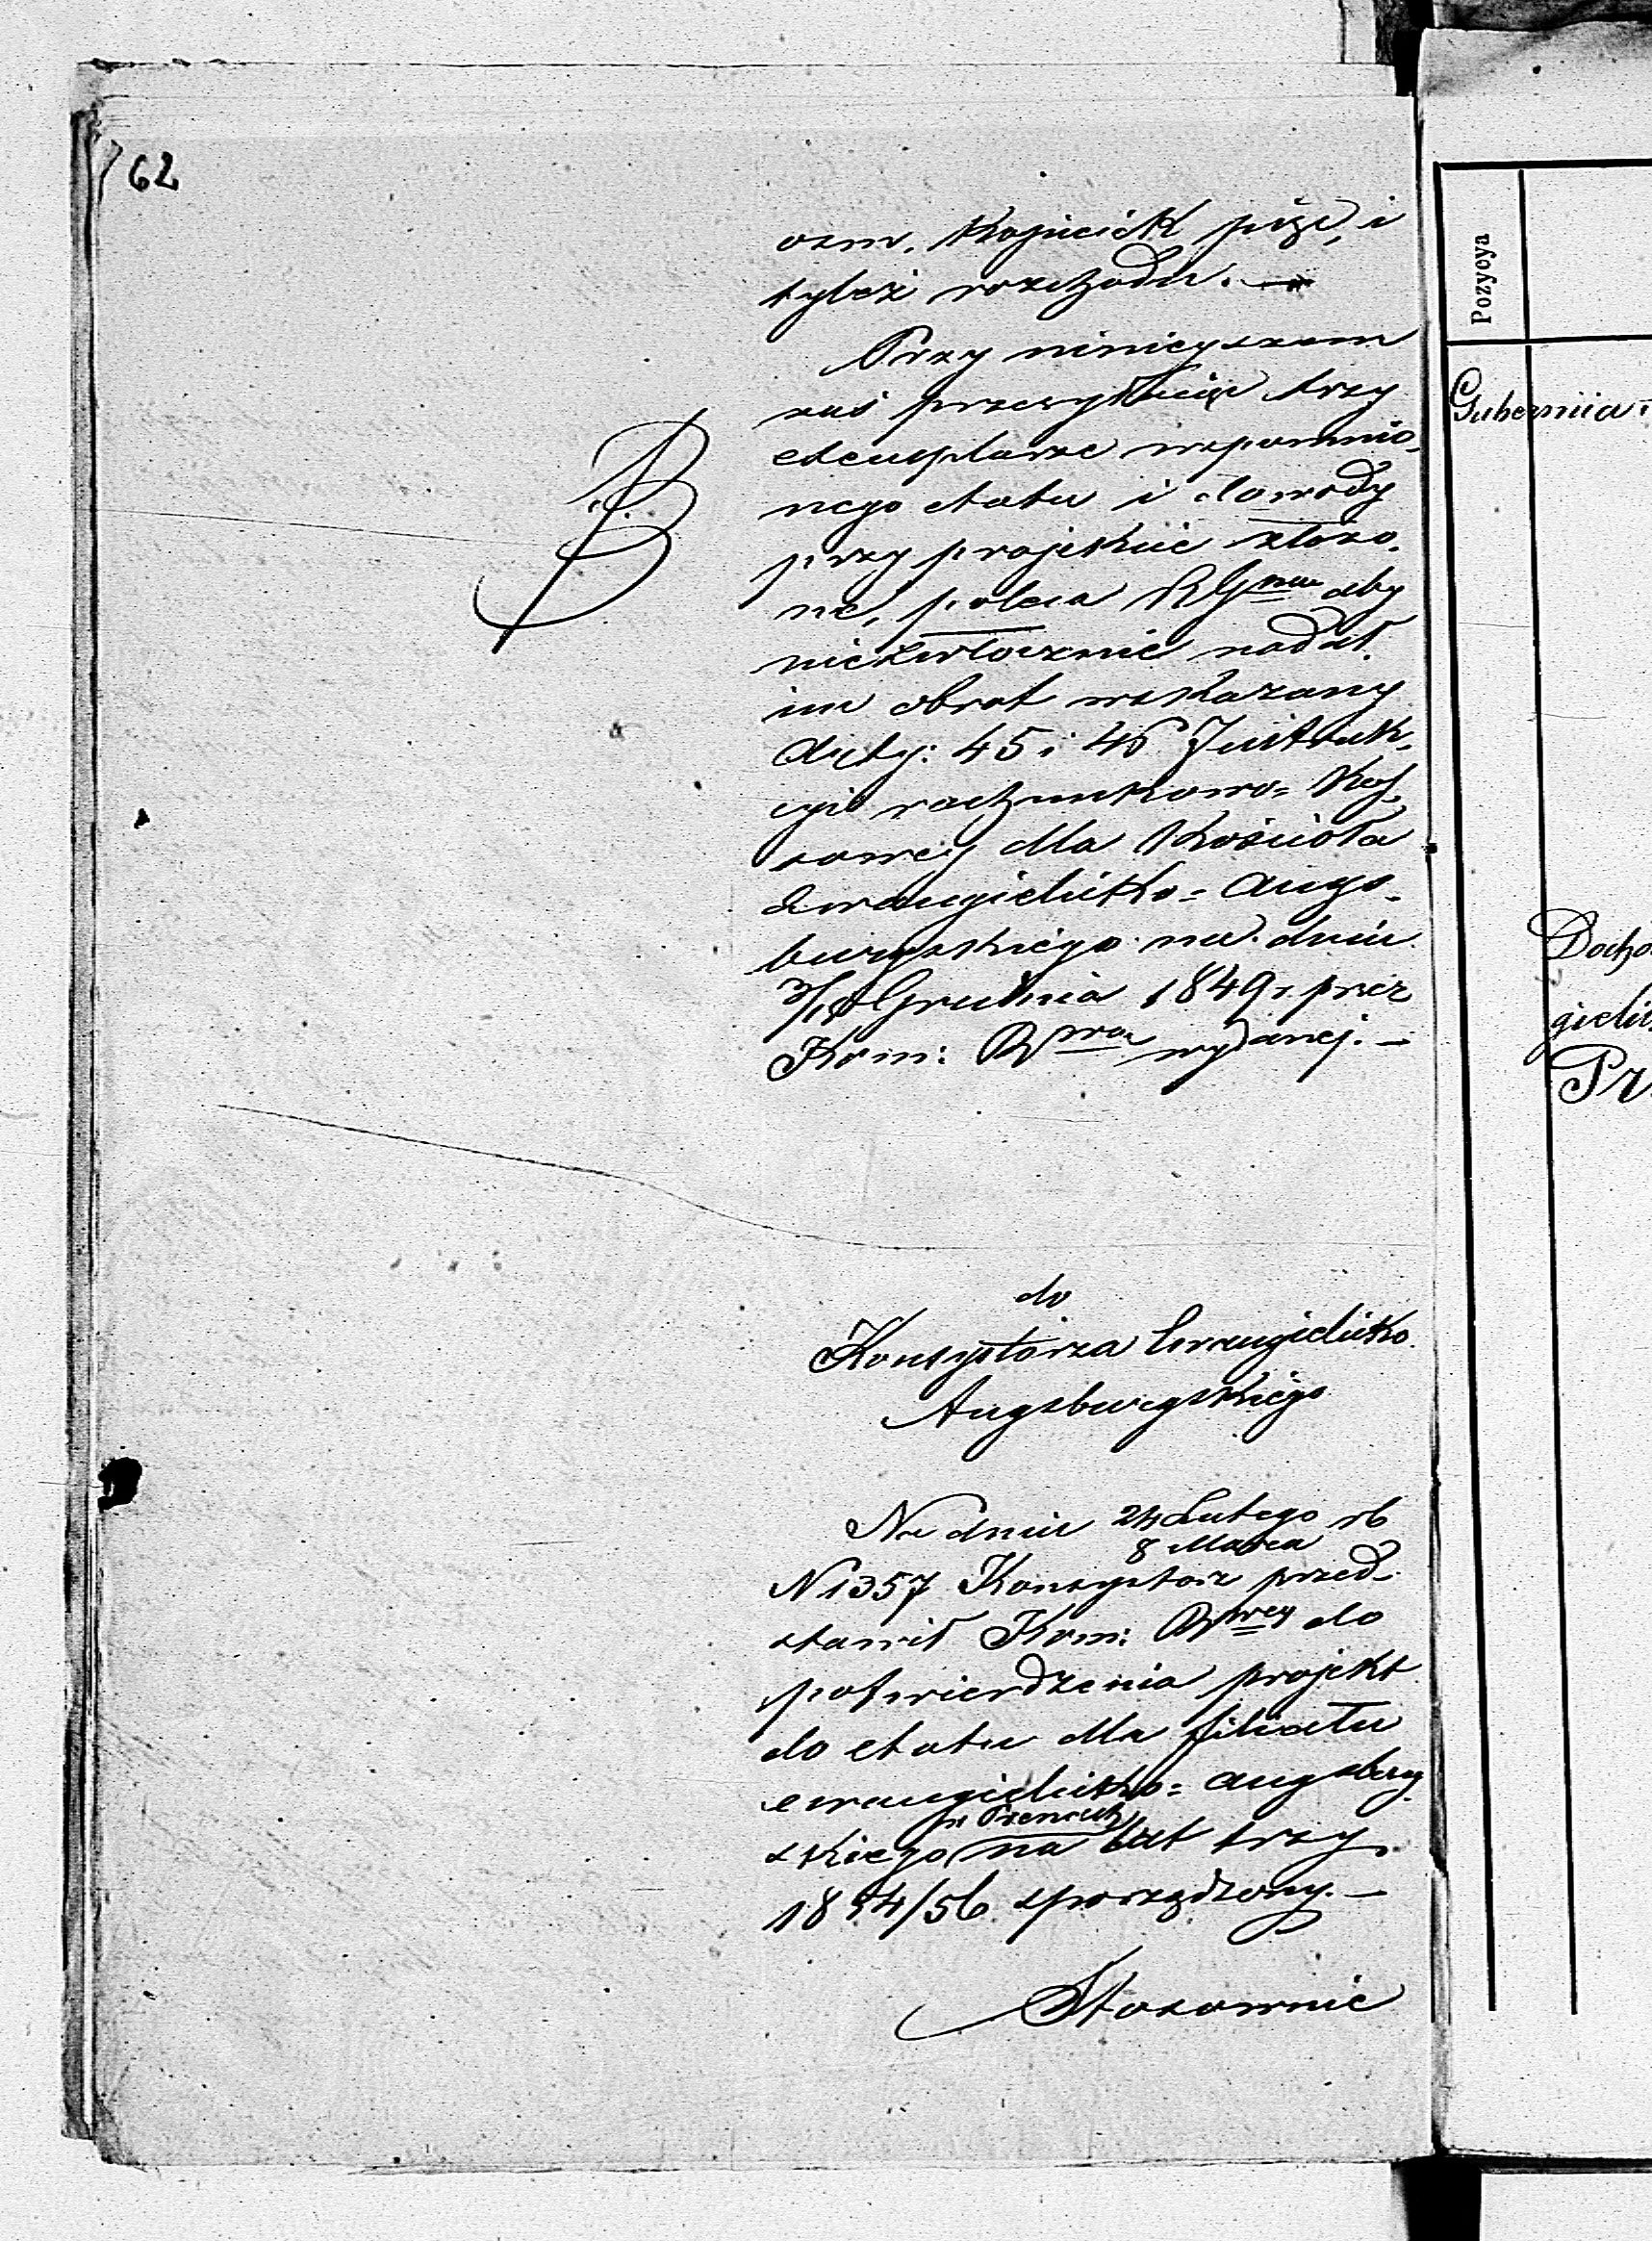 62
osm, Kopiciek pięć, i
tyleż rozchodu. —
Przy niniejszem
zaś przesyłając trzy
etcuplarze wspomnio-
nego etatu i dowody
przy projekcie złożo-
ne, poleca RGna aby
niezwłocznie nadał
im obrot wskazany
Arty: 45 i 46 Instruk-
cyi rachunkowo-Kas-
sowey dla Kościoła
Ewangielicko-Augs-
burgskiego na dniu
Grudnia 1849 r. przez
Kom: Rwą wydanej. —
do
Konsystorza Ewangielicko
Augsburgskiego
Na dniu 24 Lutego rb
8 Marca
N 1357 Konsystorz przed-
stawił Kom: Rwey do
potwierdzenia projekt
do etatu dla filiału
ewangielicko-augsburg-
w
skiego na lat trzy
1854/56 sporządzony. —
Stosownie
Pozycya
Guberniia
Docho
gielic
Pr